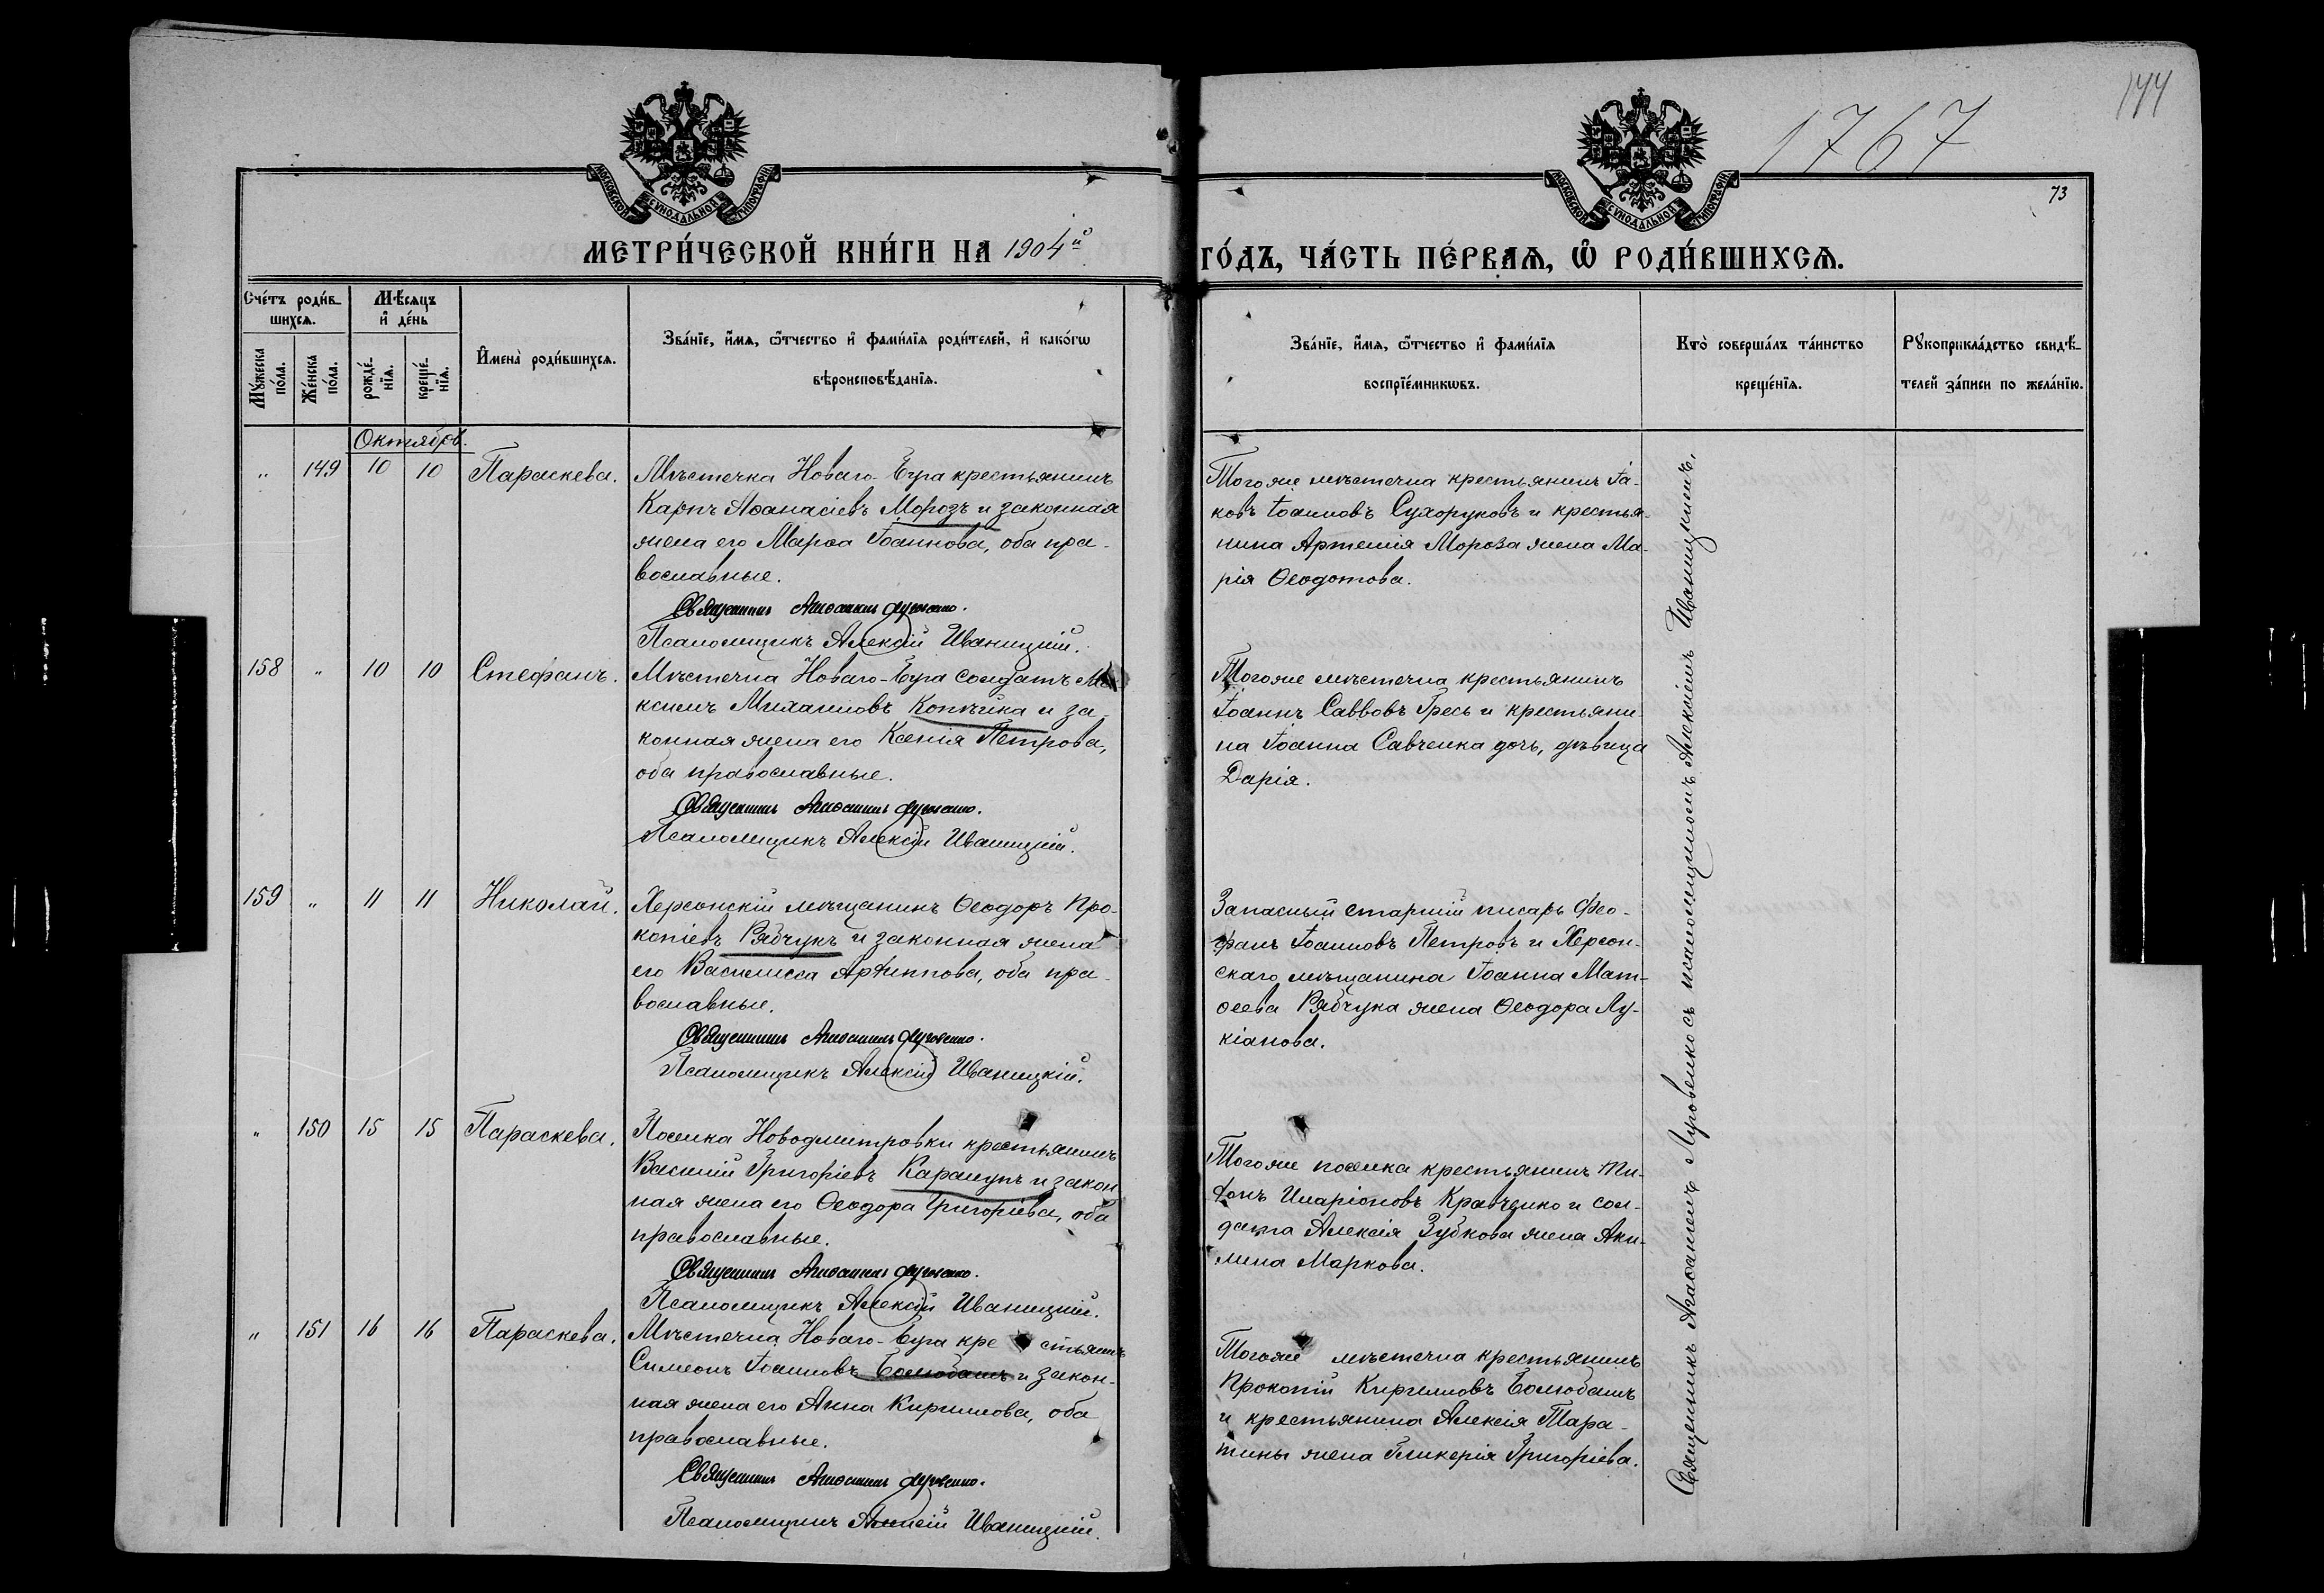 1767
144
73
МОСКОВСКОЙ СѴНОДАЛЬНОЙ ТИПОГРАФІИ
МОСКОВСКОЙ СѴНОДАЛЬНОЙ ТИПОГРАФІИ
МЕТРИ́ЧЕСКОЙ КНИ́ГИ НА 1904й
ГО́ДЪ, ЧА́СТЬ ПЕ́РВАѦ, Ѡ҆ РОДИ́ВШИХСѦ.
Сче́тъ роди́в-
шихсѧ.
Мѣ́сяцъ
и҆ де́нь
Мꙋ́жеска
по́ла.
Же́нска
по́ла.
рожде́-
нїѧ.
креще́-
нїѧ.
И҆мена̀ роди́вшихсѧ.
Зва́нїе, и҆́мѧ, ѻ҆́тчество и҆ фами́лїѧ роди́телей, и҆ како́гѡ
вѣроисповѣ́данїѧ.
Зва́нїе, и҆́мѧ, ѻ҆́тчество и҆ фами́лїѧ
воспрїе́мникѡвъ.
Кто̀ соверша́лъ та́инство
креще́нїѧ.
Рꙋкоприкла́дство свидѣ́-
телей за́писи по жела́нїю.
Октябрь.
" 149 10 10 Параскева.
Мѣстечка Новаго-Буга крестьянинъ
Карпъ Аѳанасіевъ Морозъ и законная
жена его Марѳа Іоаннова, оба пра-
вославные.
Священникъ Агаѳангелъ Луговенко.
Псаломщикъ Алексій Иваницкій.
Того же мѣстечка крестьянинъ Іа-
ковъ Іоанновъ Сухоруковъ и крестья-
нина Артемія Мороза жена Ма-
рія Ѳеодотова.
158 " 10 10 Стефанъ.
Мѣстечка Новаго-Буга солдатъ Ма-
ксимъ Михаиловъ Копѣйка и за-
конная жена его Ксенія Петрова,
оба православные.
Священникъ Агаѳангелъ Луговенко.
Псаломщикъ Алексій Иваницкій.
Того же мѣстечка крестьянинъ
Іоаннъ Саввовъ Гресь и крестьяни-
на Іоанна Савченка дочь, дѣвица
Дарія.
159 " 11 11 Николай.
Херсонскій мѣщанинъ Ѳеодоръ Про-
копіевъ Рябчукъ и законная жена
его Василисса Архиппова, оба пра-
вославные.
Священникъ Агаѳангелъ Луговенко.
Псаломщикъ Алексій Иваницкій.
Запасный старшій писарь Фео-
фанъ Іоанновъ Петровъ и Херсон-
скаго мѣщанина Іоанна Мат-
ѳеева Рябчука жена Ѳеодора Лу-
кіанова.
" 150 15 15 Параскева.
Поселка Новодмитровки крестьянинъ
Василій Григоріевъ Карапунъ и закон
ная жена его Ѳеодора Григоріева, оба
православные.
Священникъ Агаѳангелъ Луговенко.
Псаломщикъ Алексій Иваницкій.
Того же поселка крестьянинъ Ти-
хонъ Иларіоновъ Кравченко и сол-
дата Алексія Зубкова жена Аки-
лина Маркова.
" 151 16 16 Параскева.
Мѣстечка Новаго-Буга кре стьянинъ
Симеонъ Іоанновъ Болюбашъ и закон-
ная жена его Анна Кириллова, оба
православные.
Священникъ Агаѳангелъ Луговенко.
Псаломщикъ Алексій Иваницкій.
Того же мѣстечка крестьянинъ
Прокопій Кирилловъ Болюбашъ
и крестьянина Алексія Тара-
тины жена Гликерія Григоріева.
Священникъ Агаѳангелъ Луговенко съ псаломщикомъ Алексіемъ Иваницкимъ.